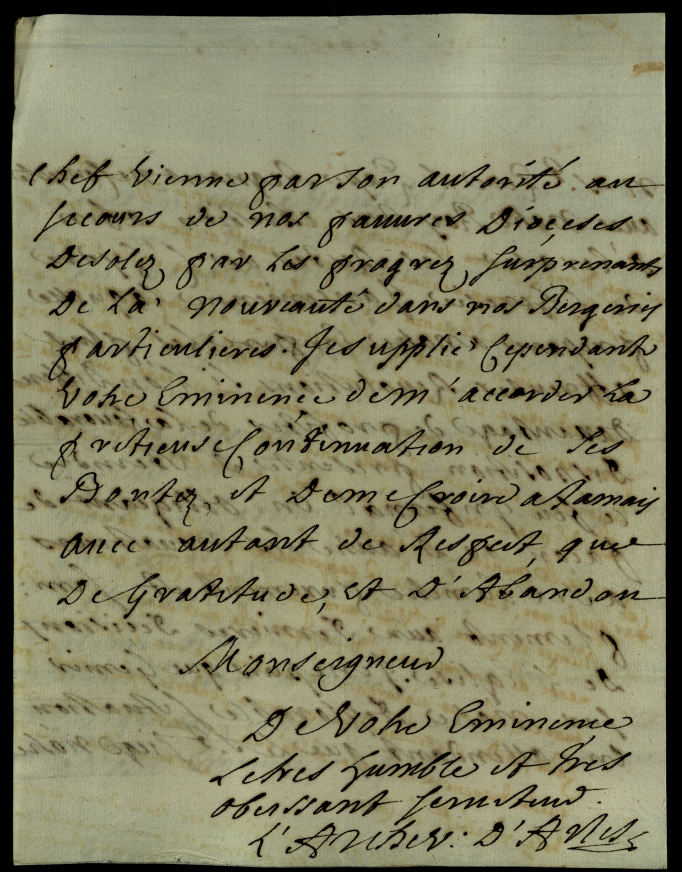 Chef vienne par son autorité au
secours de nos pauures Dioceses
Desolez par les progrez surprenants
De La nouveauté dans nos Bergeries
particulieres. Je supplie Cependant
Votre Eminence de m'accorder La
pretieuse Continuation de ses
Bontez, et De me Croire a Jamais
auec autant de Respect, que
De Gratitude, et D'Abandon
Monseigneur
De Votre Eminence
Le tres humble et tres
obeissant seruiteur.
L'Archev: D'Arles